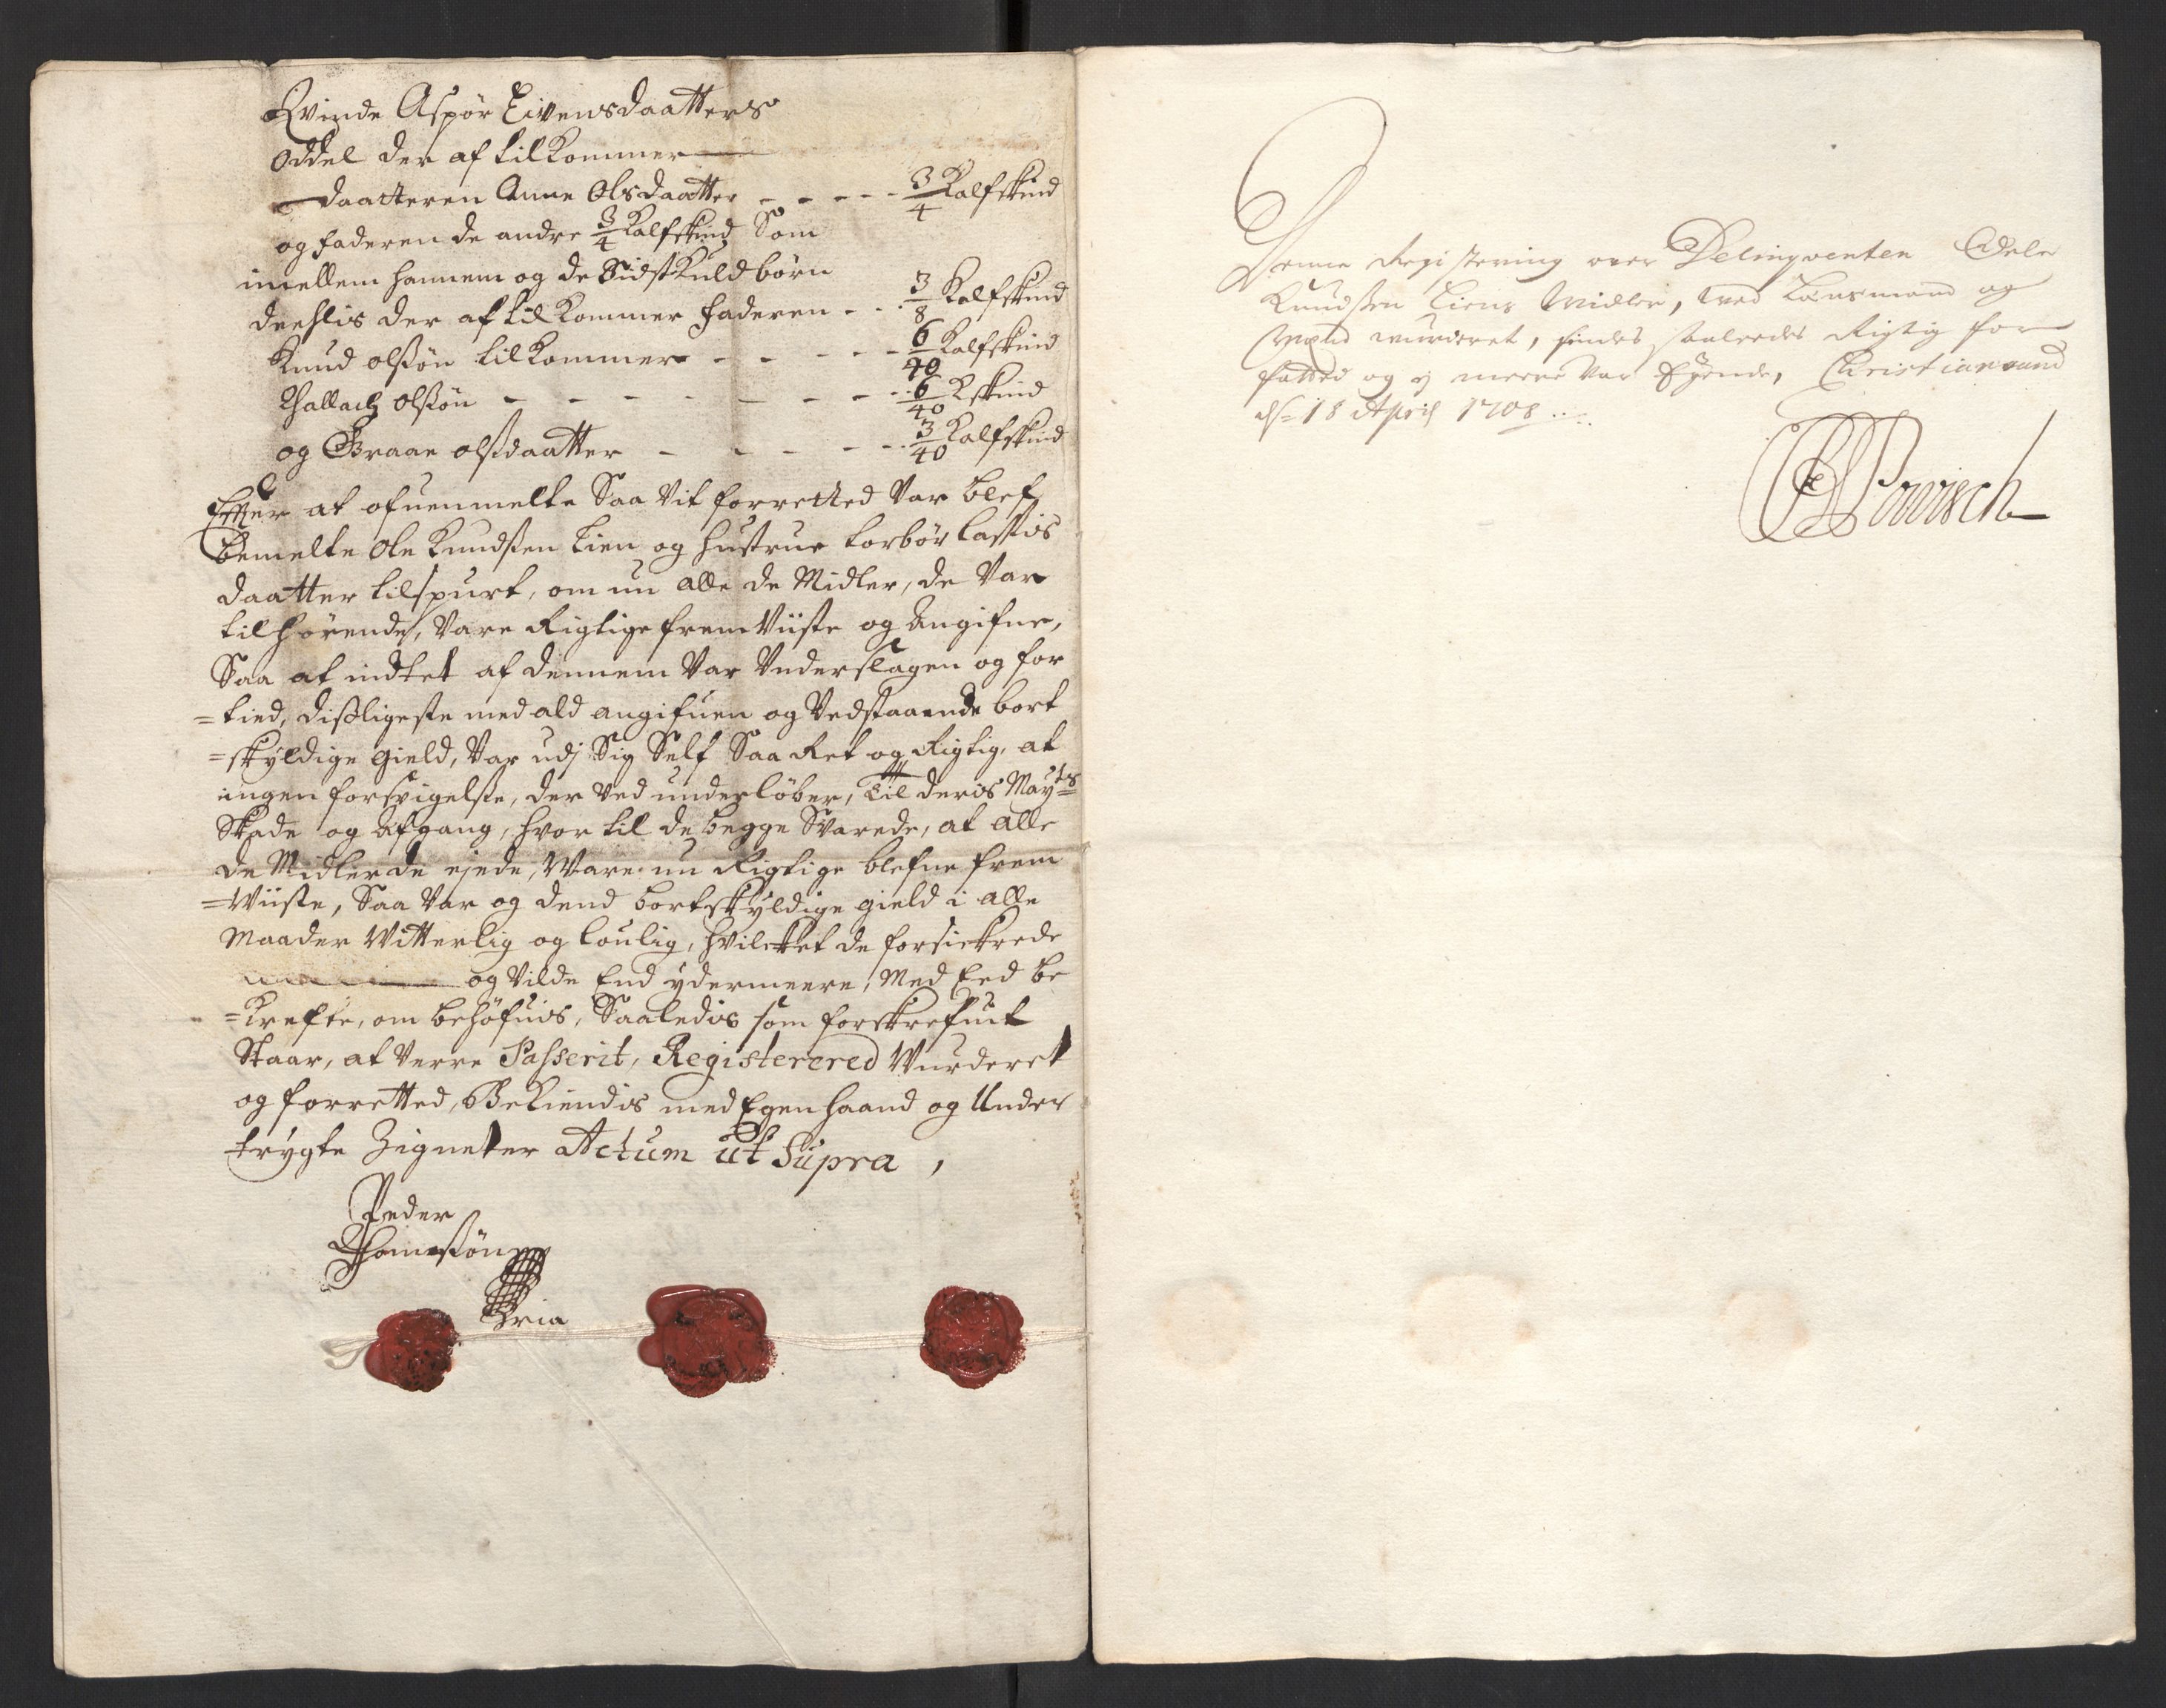 Qvinde Aspör Eivensdaatters
Oddel der af tilkommer
daatteren Anne Olsdaatter - - - - - 3/4 Kalfskind
og faderen de andre 3/4 Kalfskind Som
imellem hannem og de Sidst Kuld börn
deehlis der af til Kommer faderen - - 3/8 Kalfskind
Knud olsön tilkommer - - - - - 6/40 Kalfskind
Thallach olsön - - - - - - - - 6/40 Kskind
og Graae olsdaatter - - - - - 3/40 Kalfskind
Effter at ofuenmelte Saa Vit forretted Var blef
bemelte Ole Knudsen Lien og hustrue torbör
daatter tilspurt, om nu alle de Midler, de Var
tilhörende, Vare Rigtige fremViiste og Angifne,
Saa at indtet af dennem Var Underslagen og for
=tied, disligeste med ald angifuen og Vedstaaende bort
=skyldige gield, Var udj Sig Self Saa Ret og Rigtig, at
ingen forsvigelse, der ved underlöber, til deris Mayts
Skade og Afgang, hvor til de begge Svarede, at alle
de Midler de ejede, Ware nu Rigtige blefne frem
=Wiiste, Saa Var og dend bortskyldige gield i alle
Maader Witterlig og loulig, hvilcket de forsickrede
og Vilde End ydermeere, Med Eed be
=Krefte, om behöfuis, Saaledis som forskrefuit
Staar, at Verre Passerit, Registerered Wurderet
og forretted, Bekiendis med Egen haand og Under
trygte Zigneter Actum ut Supra,
Peder
Thomesön
Denne Registering over Delinqventen Ole
Knudsen Liens Midler, ved Lensmand og
Mænd wurderet, findes saaledes Rigtig for
fatted og ej meere var Eyende, Christiansand
ds 18 April 1708